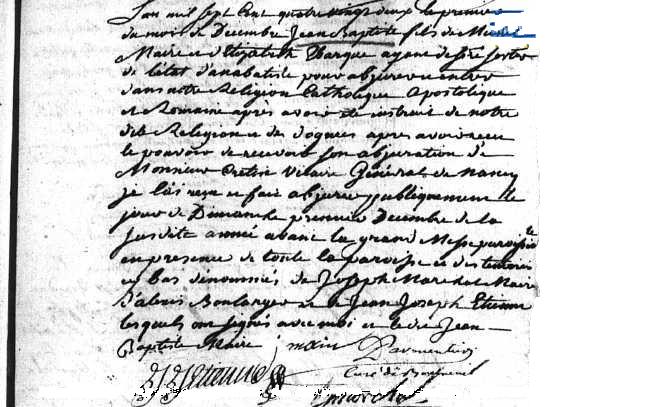 L'an mil sept Cent quatre vingt deux le premier
du mois de Decembre Jean Baptiste fils de Nicolas
Maire et d'Elizabeth Barque ayant desiré sortir
de l'état d'anabatiste pour abjurer et entrer
dans notre Religion Catholique Apostolique
et Romaine après avoir été instruit de notre
dite Religion et des dogmes apres avoir recu
le pouvoir de recevoir son abjuration de
Monsieur Vicaire Général de Nancy
je l'ai reçu et fait abjurer publiquement le
jour de Dimanche premier Decembre de la
susdite année avant la grand Messe paroissiale
en presence de toute la paroisse et des temoins
cy bas dénommés de Joseph Marchal Maire
d'alexis Boulanger et de Jean Joseph Etienne
lesquels ont signés avec moi et le dit Jean
Baptiste Maire
Parmentier
JJ Etienne Curé de
marchal